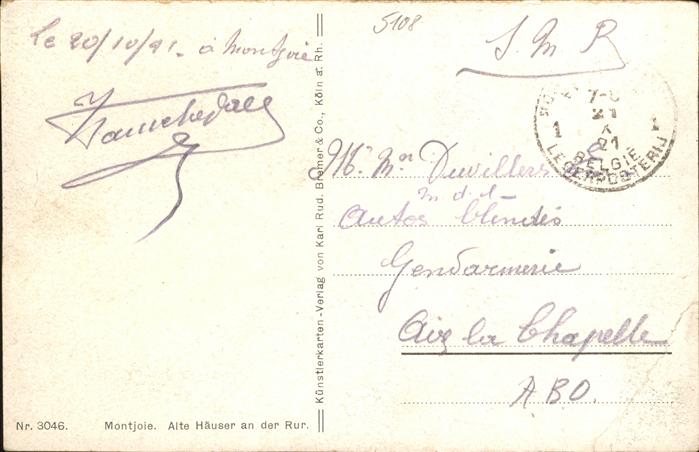 5108
Le 20/10/21 - à Montjoie
S. M. R
7-8
21
X
21
1 1
BELGIE
LEGERPOSTERIJ
Mr Duvillers
m d l
Autos blindés
Gendarmerie
Aix la Chapelle
A B O.
Künstlerkarten-Verlag von Karl Rud. Bremer & Co., Köln a. Rh.
Nr. 3046. Montjoie. Alte Häuser an der Rur.